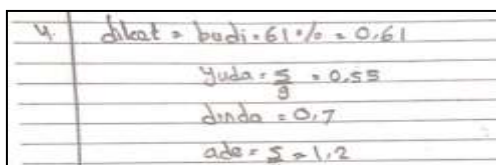 4. dikat = budi = 61% = 0,61
yuda = 5/9 = 0,55
dinda = 0,7
ade = 5 = 1,2